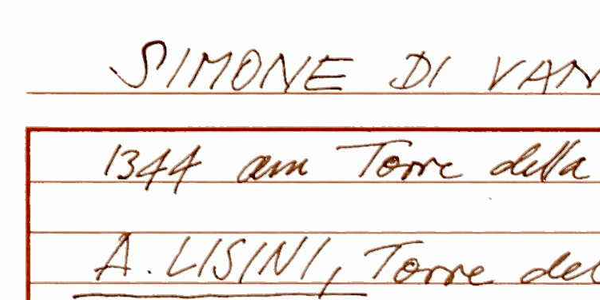 SIMONE DI VAN
1344 am Torre della
A. LISINI, Torre del